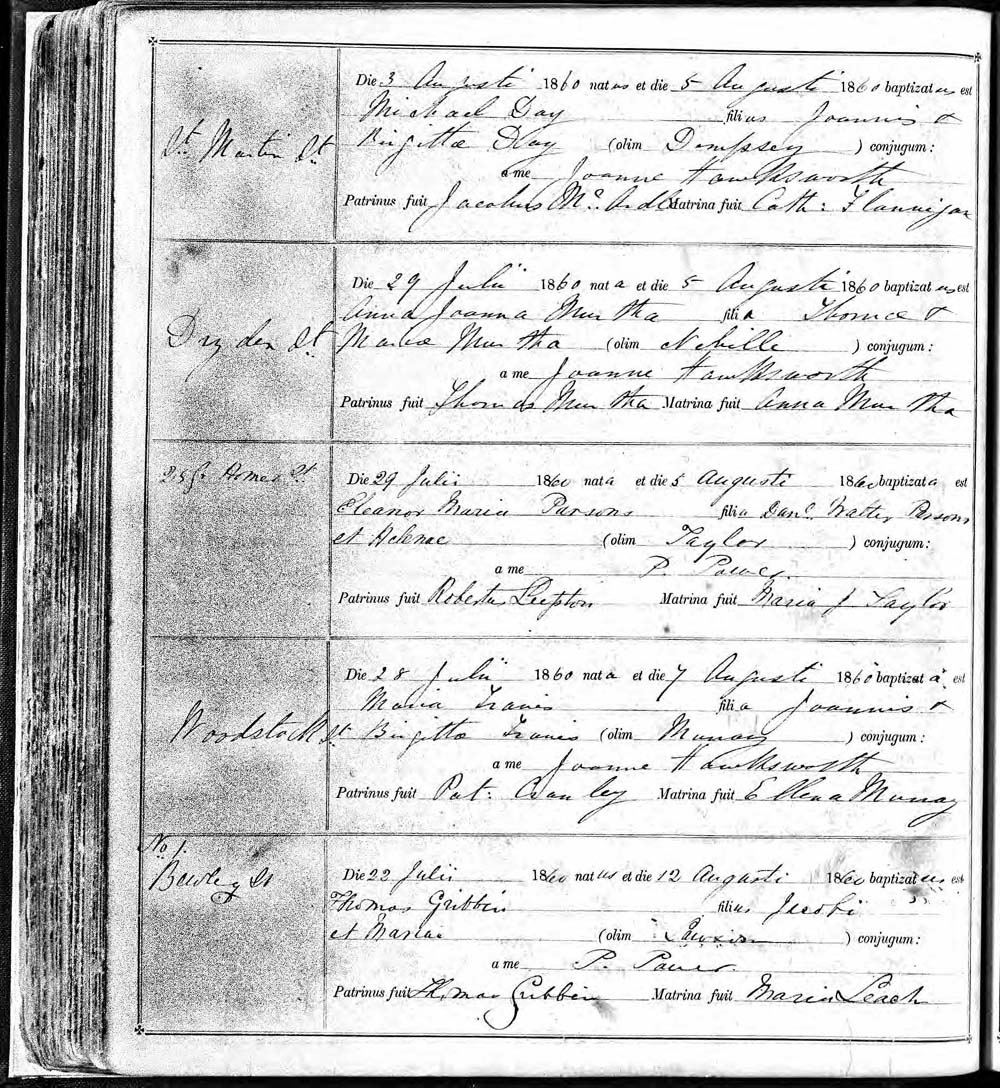 St. Martin St.
Die 3 Augusti 1860 natus et die 5 Augusti 1860 baptizatus est
Michael Day filius Joannis &
Brigittæ Day (olim Dempsey) conjugum:
a me Joanne Hawksworth
Patrinus fuit Jacobus Mc. Ardle Matrina fuit Cath: Flannigan
Dryden St.
Die 29 Julii 1860 nata et die 5 Augusti 1860 baptizatus est
Anna Joanna Murtha filia Thomæ &
Mariæ Murtha (olim Nebille) conjugum:
a me Joanne Hawksworth
Patrinus fuit Thomas Murtha Matrina fuit Anna Murtha
Homer St.
Die 29 Julii 1860 nata et die 5 Augusti 1860 baptizata est
Eleanor Maria Parsons filia Danl. Walter Parsons
et Helenae (olim Taylor) conjugum:
a me P. Power.
Patrinus fuit Robertus Matrina fuit Maria J Taylor
Woodstock St.
Die 28 Julii 1860 nata et die 7 Augusti 1860 baptizata est
Maria Travis filia Joannis &
Brigittæ Travis (olim Murray) conjugum:
a me Joanne Hawksworth
Patrinus fuit Pat: Matrina fuit Ellena Murray
No 1.
Bewley St
Die 22 Julii 1860 natus et die 12 Augusti 1860 baptizatus est
Thomas Gribbin filius Jacobi
et Mariae (olim ) conjugum:
a me P. Power.
Patrinus fuit Thomas Gribbin Matrina fuit Maria Leach